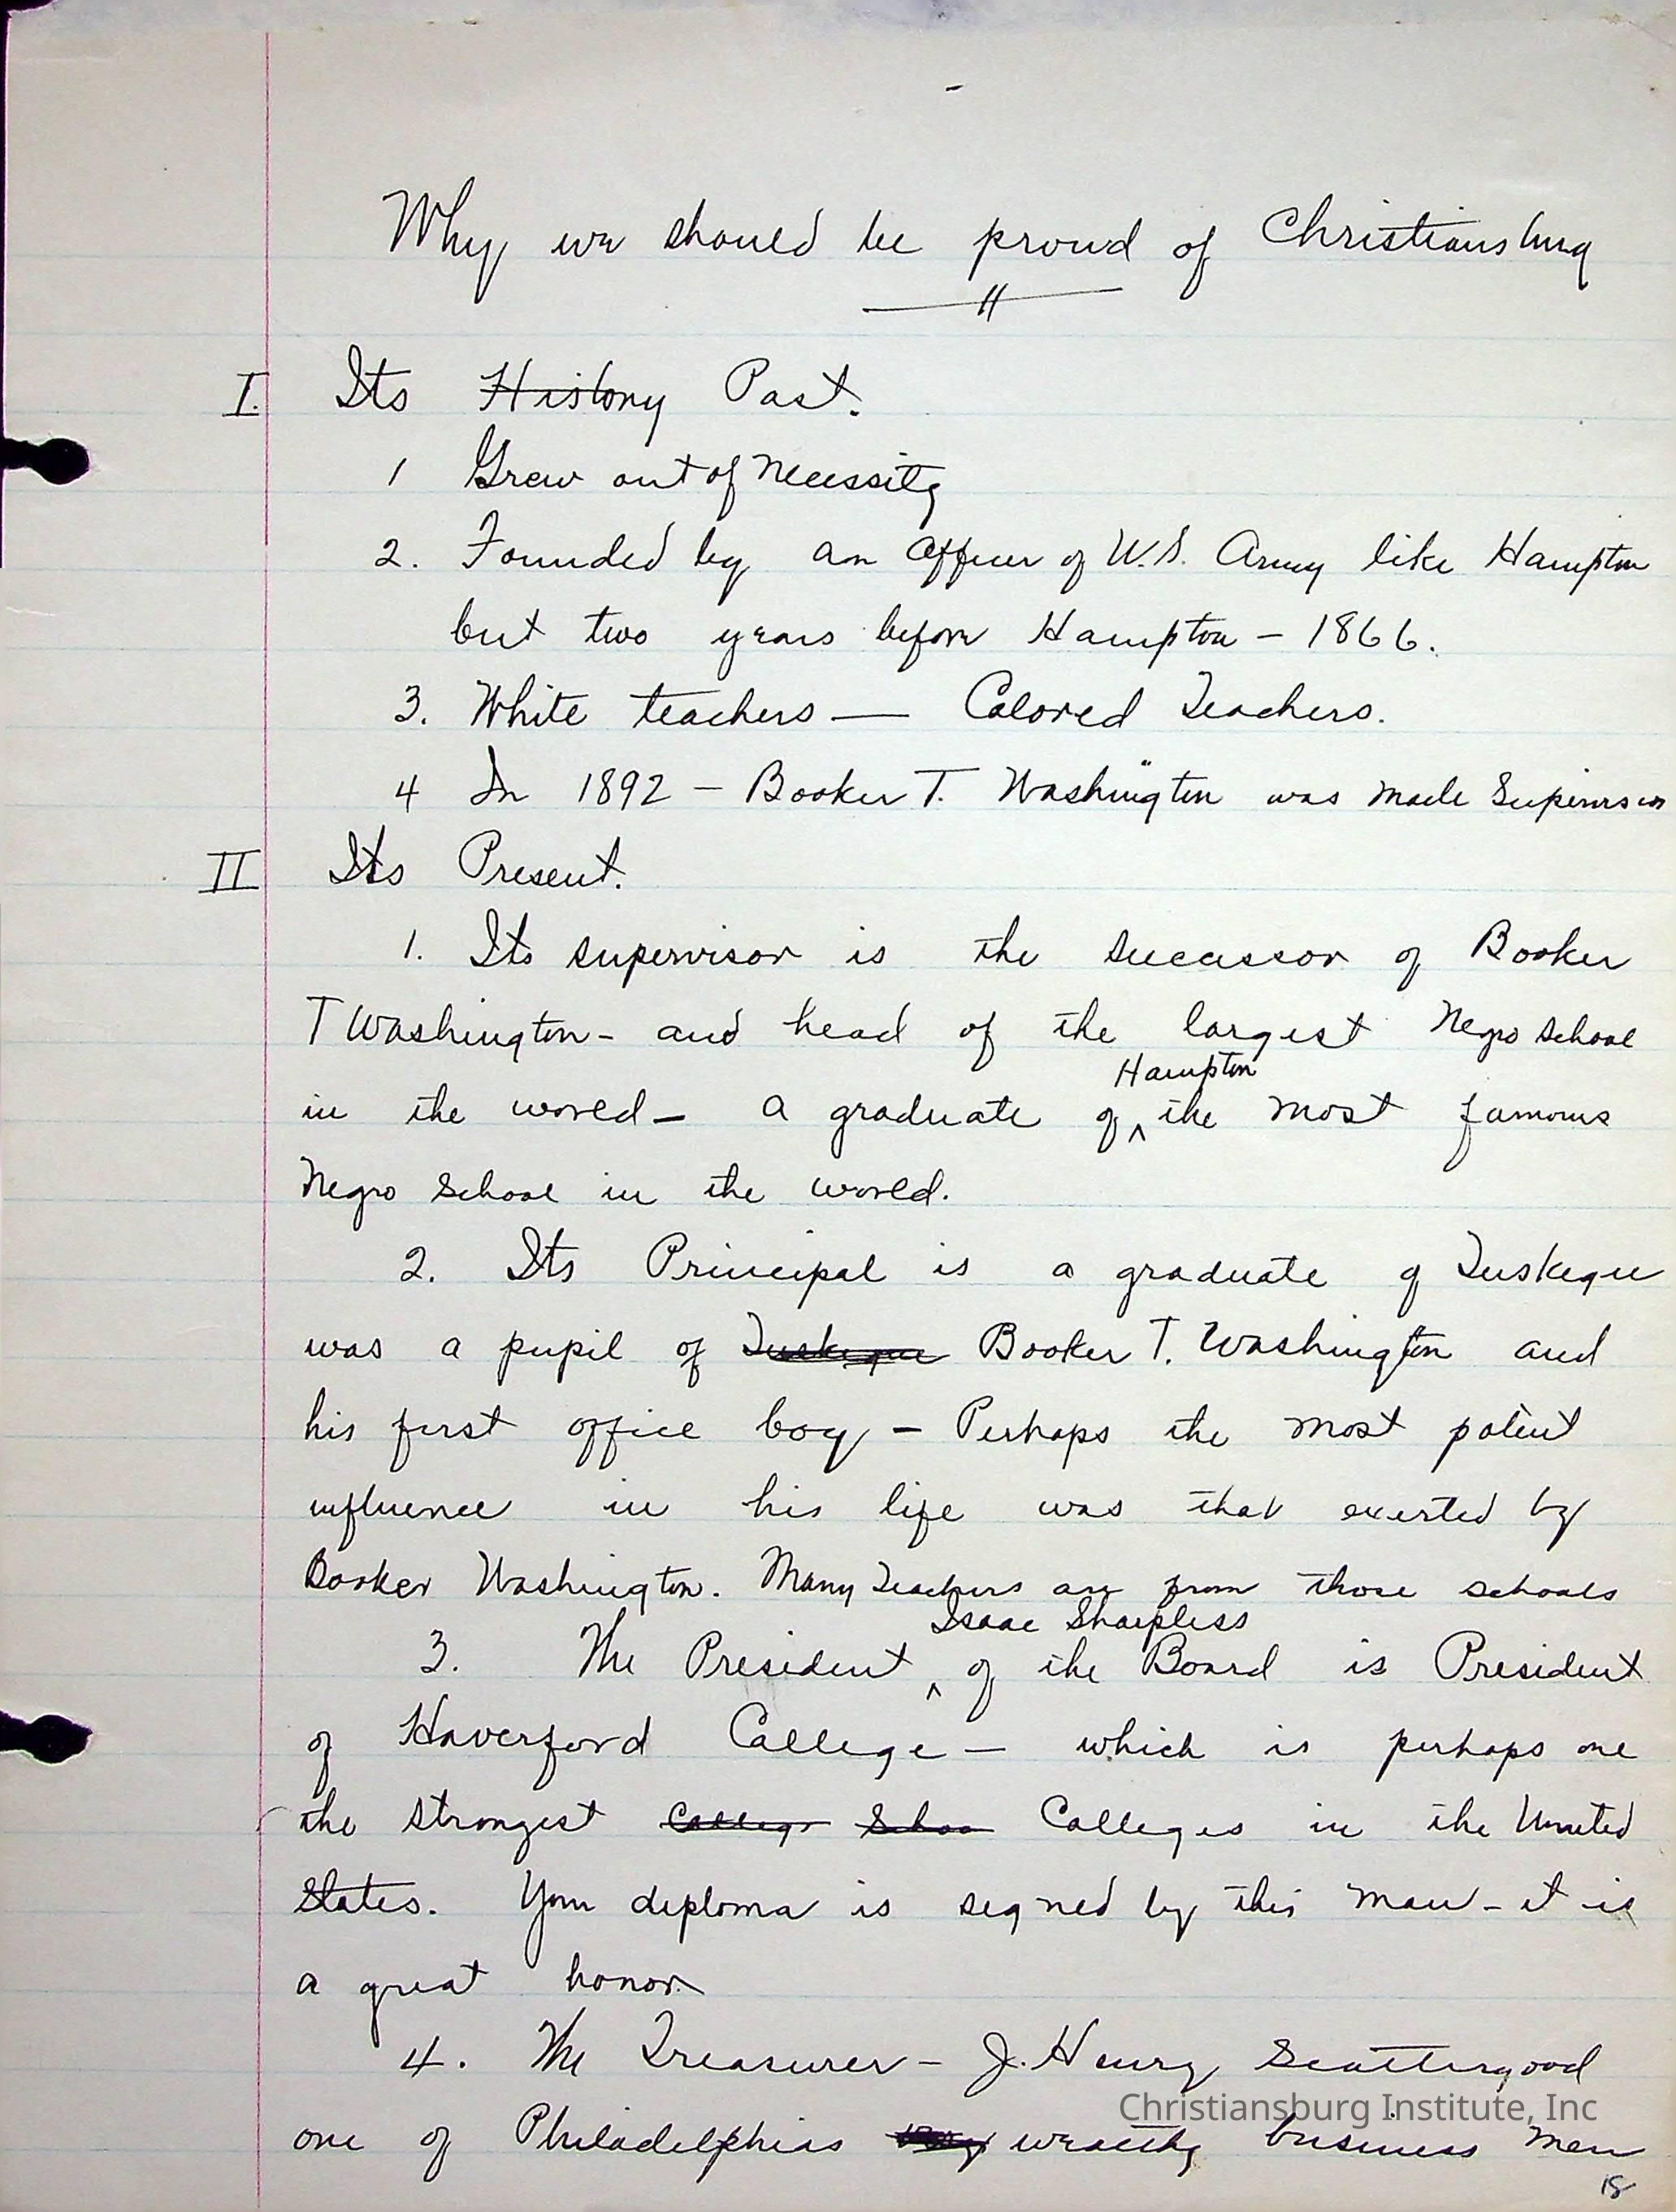 Why we should be proud of Christiansburg
I. Its History Past.
1 Grew out of Necessity
2. Founded by an Officer of U.S. Army like Hampton
but two years before Hampton - 1866.
3. White teachers — Colored Teachers.
4 In 1892 - Booker T. Washington was made Supervisor
II Its Present.
1. Its supervisor is the successor of Booker
T Washington - and head of the largest Negro School
Hampton
in the world - a graduate of ^ the most famous
Negro School in the world.
2. Its Principal is a graduate of Tuskegee
was a pupil of Tuskegee Booker T. Washington and
his first office boy - Perhaps the most potent
influence in his life was that exerted by
Booker Washington. Many Teachers are from those schools
Isaac Sharpless
3. The President ^ of the Board is President
of Haverford College - which is perhaps one
the strongest College Schoo Colleges in the Unuted
States. Your diploma is segned by this man - it is
a great honor.
4. The Treasurer - J. Henry Scattergood
Christiansburg Institute, Inc
one of Philadelphias wealthy business men
18